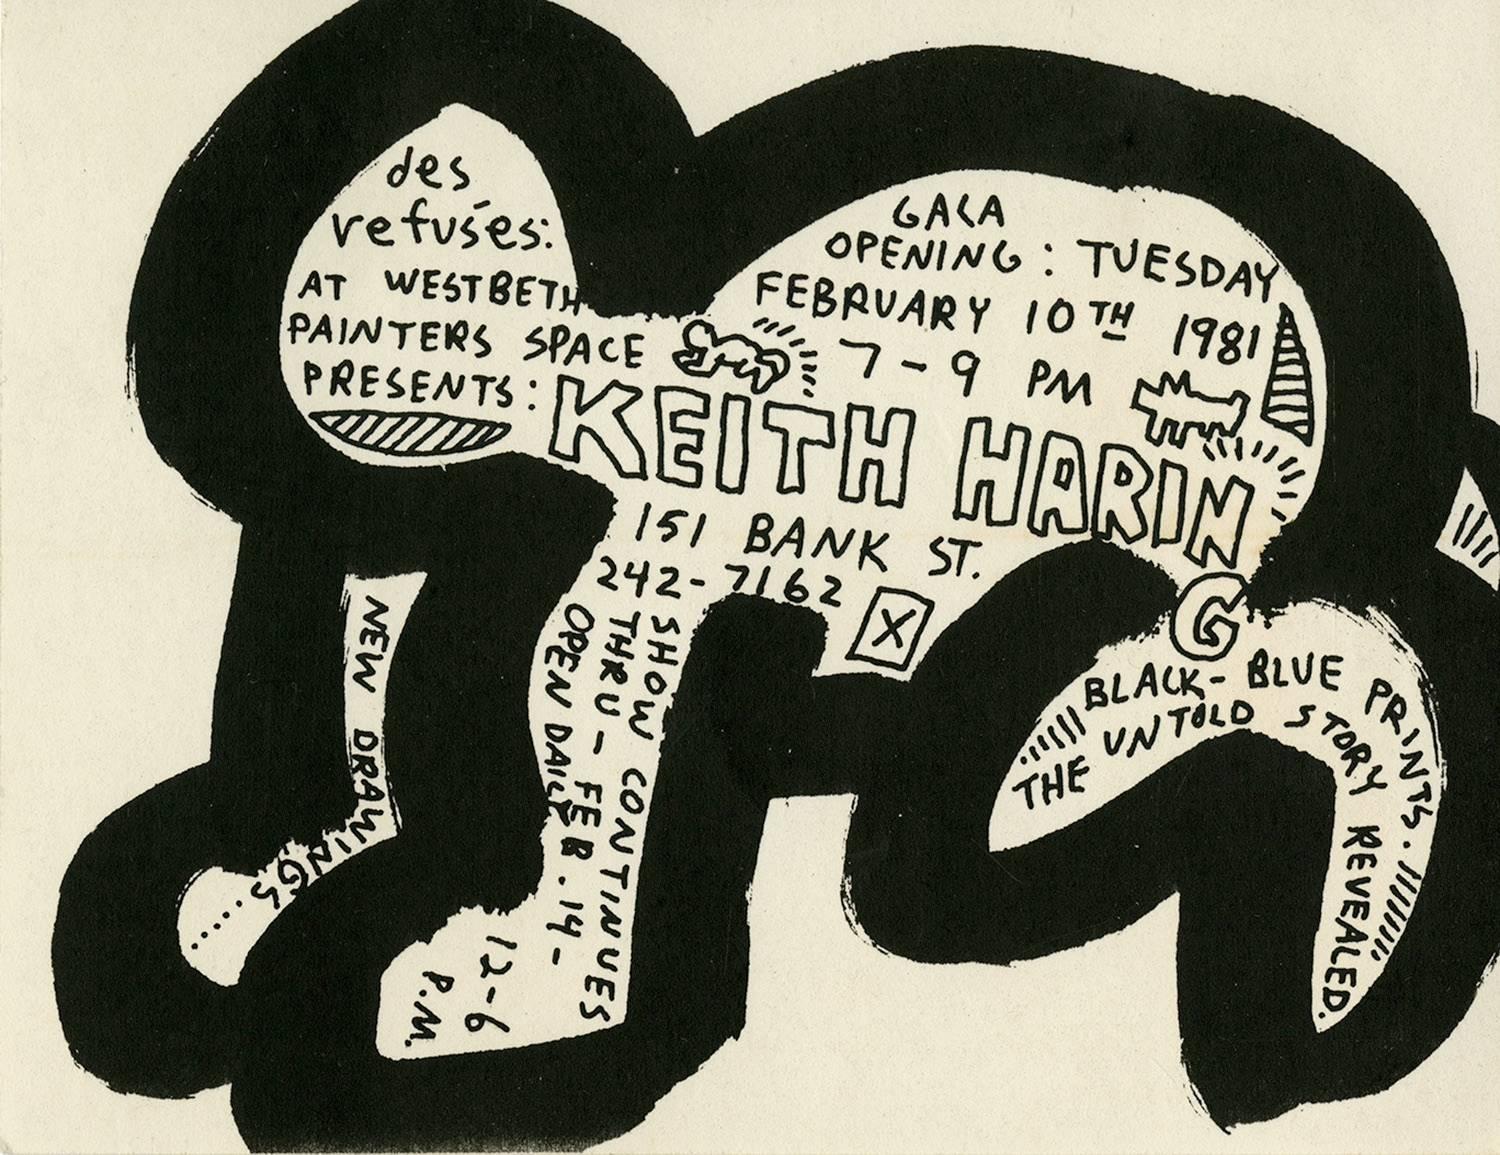 des
refusés:
AT WESTBETH
PAINTERS SPACE
PRESENTS:
GALA
OPENING: TUESDAY
FEBRUARY 10TH 1981
7-9 PM
KEITH HARING
151 BANK ST.
242-7162
X
SHOW CONTINUES
THRU - FEB. 14 -
OPEN DAILY
12-6
P.M.
NEW DRAWINGS .....
BLACK-BLUE PRINTS.
THE UNTOLD STORY REVEALED.